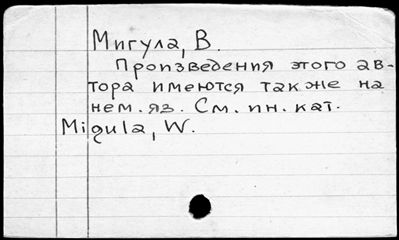 Мигула, В.
Произведения этого ав-
тора имеются также на
нем. яз. См. ин. кат.
Migula, W.